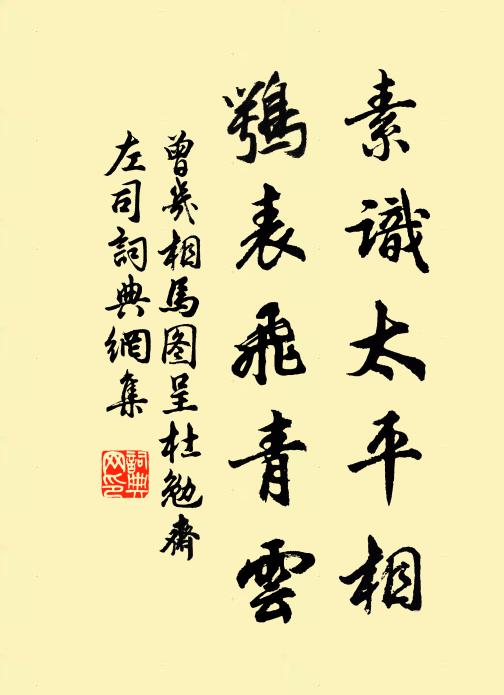 素識太平相
鶚表飛青雲
曾幾相馬图呈杜勉齋
左司詞典網集
詞典网印